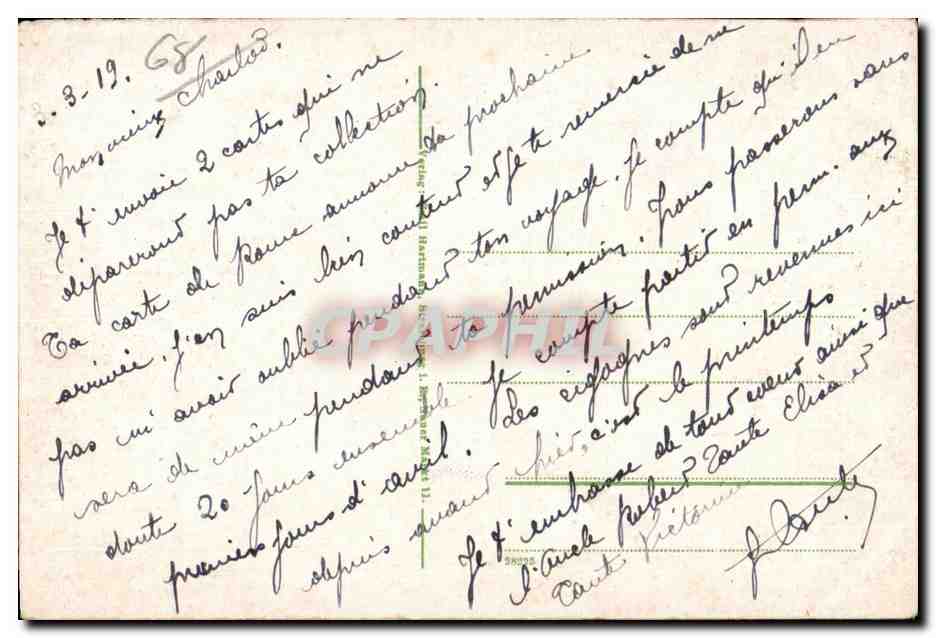 2-3-19. 68
Mon vieux Charlot.
Je t'envoie 2 cartes qui ne
dépareront pas ta collection.
Ta carte de Rome annonce la prochaine
arrivée. J'en suis bien content et je te remercie de ne
pas m'avoir oublié pendant ton voyage. Je compte qu'il en
sera de même pendant ta permission. Nous passerons sans
doute 20 jours ensemble. Je compte partir en perm. aux
premiers jours d'avril. Les cigognes sont revenues ici
depuis avant hier, c'est le printemps
Je t'embrasse de tout coeur ainsi que
l'oncle Robert Tante Elisa et
Tante Victorine
Verlag: Hartmann, Alter Markt 11.
58235
CPAPHIL